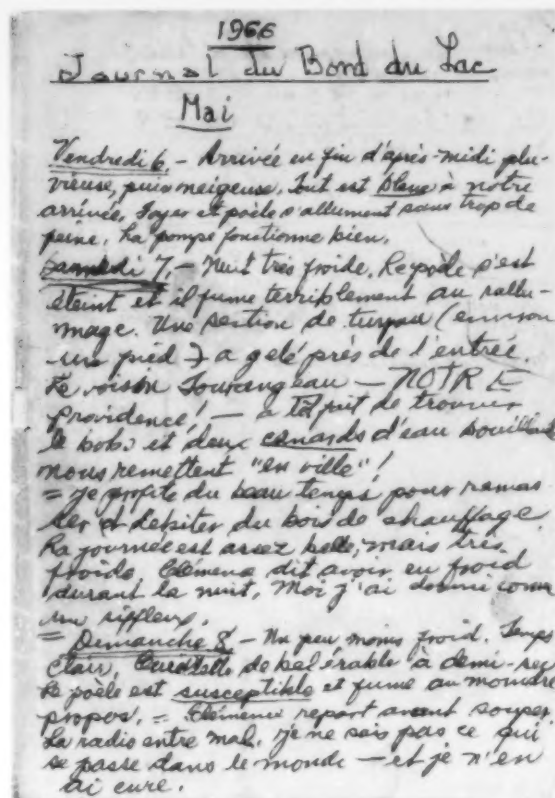 1966
Journal du Bord du Lac
Mai
Vendredi 6. - Arrivée en fin d'après-midi plu-
vieuse, puis neigeuse. Tout est à notre
arrivée, Foyer et poêle s'allument sans trop de
peine. La pompe fonctionne bien.
Samedi 7. - Nuit très froide. Le poêle s'est
éteint et il fume terriblement au rallu-
mage. Une section de tuyau (environ
un pied) a gelé près de l'entrée.
Le voisin Tourangeau - NOTRE
providence! - a tôt fait de trouver
le bobo et deux canards d'eau bouillante
nous remettent "en ville"!
= Je profite du beau temps pour ramas-
ser et débiter du bois de chauffage
La journée est assez belle, mais très
froide. Clémence dit avoir eu froid
durant la nuit. Moi j'ai dormi comme
un siffleux.
= Demanche 8 - Un peu moins froid. Temps
clair, de bel érable à demi-sec
Le poêle est susceptible et fume au moindre
propos. = Clémence repart avant souper
La radio entre mal. Je ne sais pas ce qui
se passe dans le monde - et je n'en
ai cure.